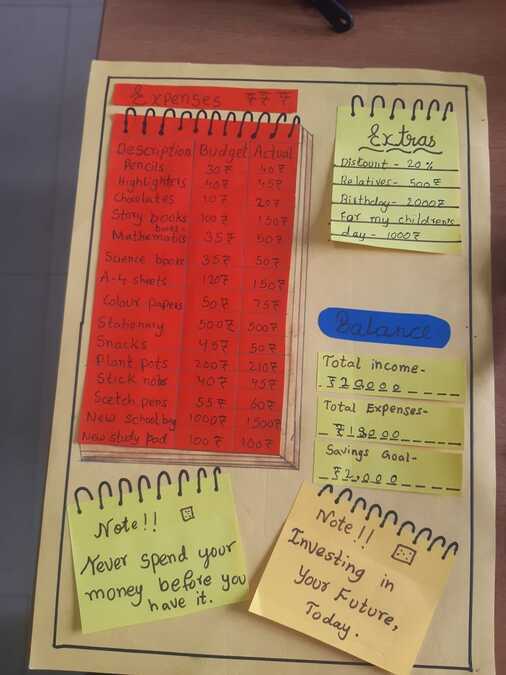 Expenses ₹₹ ₹
Description Budget Actual
Pencils 30₹ 40₹
Highlighters 40₹ 45₹
Chocolates 10₹ 20₹
Story books 100₹ 150₹
books-
Mathematics 35₹ 50₹
Science books 35₹ 50₹
A-4 sheets 120₹ 150₹
Colour papers 50₹ 75₹
Stationary 500₹ 500₹
Snacks 45₹ 50₹
Plant pots 200₹ 210₹
Stick notes 40₹ 45₹
Scetch pens 55₹ 60₹
New school bag 1000₹ 1500₹
New study pad 100₹ 100₹
Extras
Discount - 20%
Relatives - 500₹
Birthday - 2000₹
For my children's
day - 1000₹
Balance
Total income-
₹20000
Total Expenses-
₹18000
Savings Goal-
₹2,000
Note!!
Never spend your
money before you
have it.
Note!!
Investing in
Your Future,
Today.